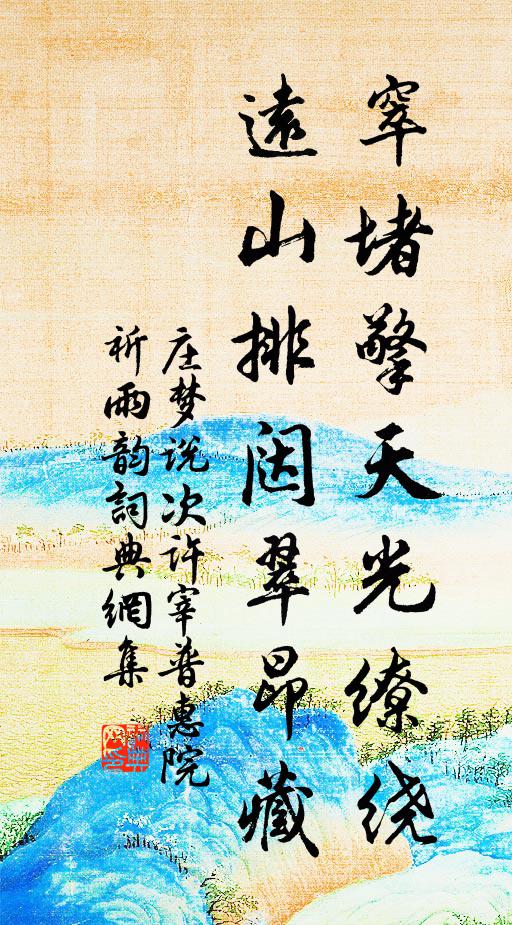 窣堵擎天光缭绕
遠山排闼翠昂藏
庄梦说次許宰普惠院
祈雨韵詞典網集